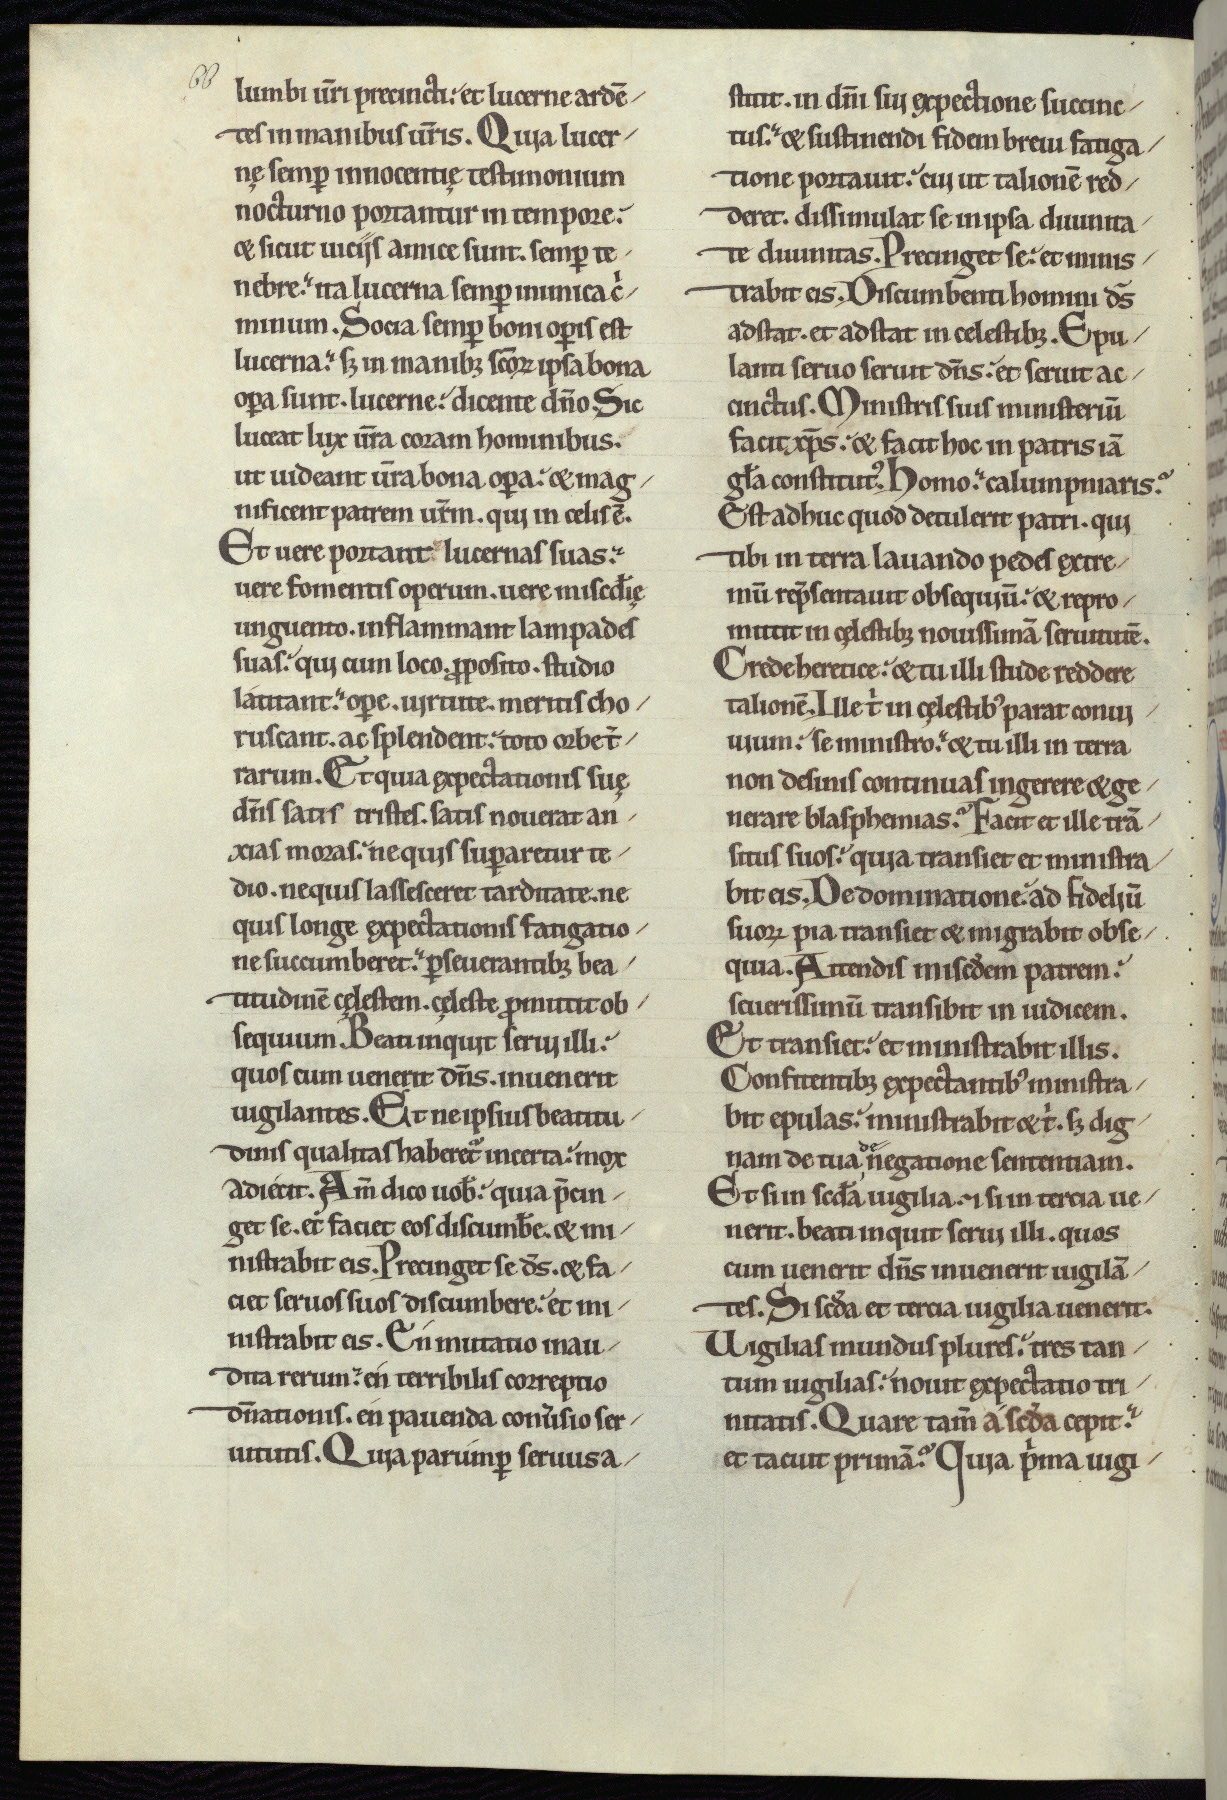 lumbi ur̄i precincti: et lucerne ardē⸝
tes in manibus ur̄is. Quia lucer⸝
nę semꝑ innocentię testimonium
nocturno portantur in tempore:
& sicut uicijs amice sunt. semꝑ te⸝
nebre: ita lucerna semꝑ inimica c̓⸝
minum. Socia semꝑ boni oꝑis est
lucerna: sꝫ in manibꝫ sc̄oꝝ ipsa bona
oꝑa sunt. lucerne: dicente dn̄o. Sic
luceat lux ur̄a coram hominibus.
ut uideant ur̄a bona oꝑa: & mag⸝
nificent patrem ur̄m. qui in celis ē.
Et uere portant lucernas suas:
uere fomentis operum. uere misc̄dię
unguento. inflammant lampades
suas: qui cum loco. ꝓposito. studio
latitant: oꝑe. uirtute. meritis cho⸝
ruscant. ac splendent: toto orbe t̓⸝
rarum. Et quia expectationis suę
dn̄s satis tristes. satis nouerat an⸝
xias moras: ne quis suꝑaretur te⸝
dio. ne quis lassesceret tarditate. ne
quis longe expectationis fatigatio⸝
ne succumberet: ꝑseuerantibꝫ bea⸝
titudinē cęlestem. cęleste ꝓmittit ob⸝
sequium. Beati inquit serui illi:
quos cum uenerit dn̄s. inuenerit
uigilantes. Et ne ipsius beatitu⸝
dinis qualitas haberet᷑ incerta: mox
adiecit. Am̄ dico uob̄: quia p̄cin⸝
get se. et faciet eos discumb̄e. & mi⸝
nistrabit eis. Precinget se ds̄. & fa⸝
ciet seruos suos discumbere: et mi⸝
nistrabit eis. En mutatio inau⸝
dita rerum: en terribilis correptio
dn̄ationis. en pauenda conūsio ser⸝
uitutis. Quia parumꝑ seruus a⸝
stitit. in dn̄i sui expectione succinc⸝
tus: & sustinendi fidem breui fatiga⸝
tione portauit: cui ut talionē red⸝
deret. dissimulat se in ipsa diuinita⸝
te diuinitas. Precinget se: et minis⸝
trabit eis. Discumbenti homini ds̄
adstat. et adstat in celestibꝫ. Epu⸝
lanti seruo seruit dn̄s: et seruit ac⸝
cinctus. Ministris suis ministeriū
facit xp̄s: & facit hoc in patris iā
gl̄a constitutꝰ. Homo: calumpniaris?
Est adhuc quod detulerit patri. qui
tibi in terra lauando pedes extre⸝
mū rep̄sentauit obsequiū: & repro⸝
mittit in cęlestibꝫ nouissimā seruitutē.
Crede heretice: & tu illi stude reddere
talionē. Ille t̓ in cęlestibꝰ parat conui⸝
uium: se ministro: & tu illi in terra
non desinis continuas ingerere & ge⸝
nerare blasphemias? Facit et ille trā⸝
situs suos: quia transiet et ministra⸝
bit eis. De dominatione: ad fideliū
suoꝝ pia transiet & migrabit obse⸝
quia. Attendis misc̄dem patrem:
seuerissimū transibit in iudicem.
Et transiet: et ministrabit illis.
Confitentibꝫ expectantibꝰ ministra⸝
bit epulas: ministrabit & t̓. sꝫ dig⸝
nam de tua de negatione sententiam.
Et si in sc̄da uigilia. ⁊ si in tercia ue⸝
nerit. beati inquit serui illi. quos
cum uenerit dn̄s inuenerit uigilā⸝
tes. Si sc̄da et tercia uigilia uenerit.
Uigilias mundus plures: tres tan⸝
tum uigilias: nouit expectatio tri⸝
nitatis. Quare tam̄ a sc̄da cepit:
et tacuit primā? Quia p̓ma uigi⸝